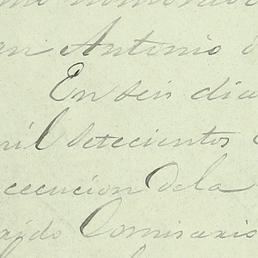 an Antonio d
En seis dia
mil setecientos
cecucion dela
raido Comisario